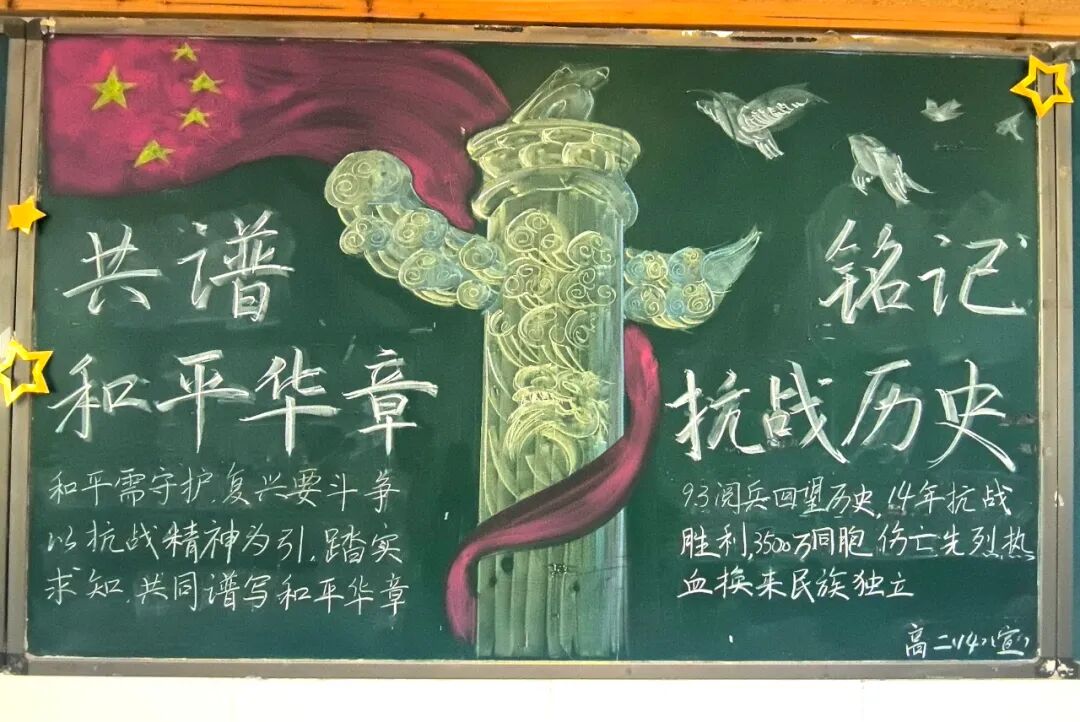 共谱
和平华章
和平需守护,复兴要斗争
以抗战精神为引,踏实
求知,共同谱写和平华章
铭记
抗战历史
93阅兵回望历史,14年抗战
胜利,3500万同胞伤亡先烈热
血换来民族独立
高二(14)(宣)